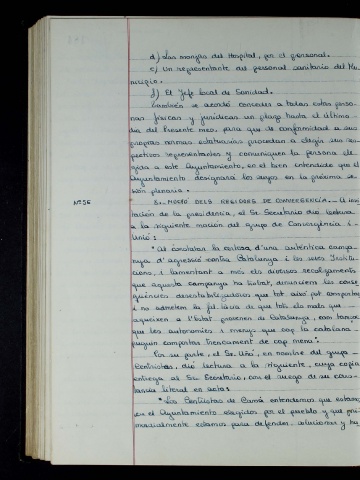 d) Las monjas del Hospital, por el personal.
e) Un representante del personal sanitario del Mu-
nicipio.
f) El Jefe Local de Sanidad.
También se acordó conceder a todas estas perso-
nas físicas y jurídicas un plazo hasta el último
día del presente mes, para que de conformidad a sus
propias normas estatutarias procedan a elegir sus res-
pectivos representantes y comuniquen la persona ele-
gida a este Ayuntamiento, en el bien entendido que el
Ayuntamiento designará los suyos en la próxima se-
sión plenaria.
Nº 36
8.- MOCIÓ DELS REGIDORS DE CONVERGÈNCIA.- A invi-
tación de la presidencia, el Sr. Secretario dio lectura
a la siguiente moción del grupo de Convergència i
Unió:
"Al constatar la certesa d'una autèntica campa-
nya d'agressió contra Catalunya i les seves Institu-
cions, i lamentant a més els diversos recolzaments
que aquesta campanya ha trobat, denunciem les conse-
qüències desestabilitzadores que tot això pot comportar
i no admetem la fal·làcia de que tots els mals que
aqueixen a l'Estat provenen de Catalunya, com tampoc
que les autonomies i menys que cap la catalana
puguin comportar trencament de cap mena".
Por su parte, el Sr. Uñó, en nombre del grupo
Centristas, dio lectura a la siguiente, cuya copia
entrega al Sr. Secretario, con el ruego de su cons-
tancia literal en acta:
"Los Centristas de entendemos que estamos
en el Ayuntamiento elegidos por el pueblo y que pri-
mordialmente estamos para defender, solucionar y ha-